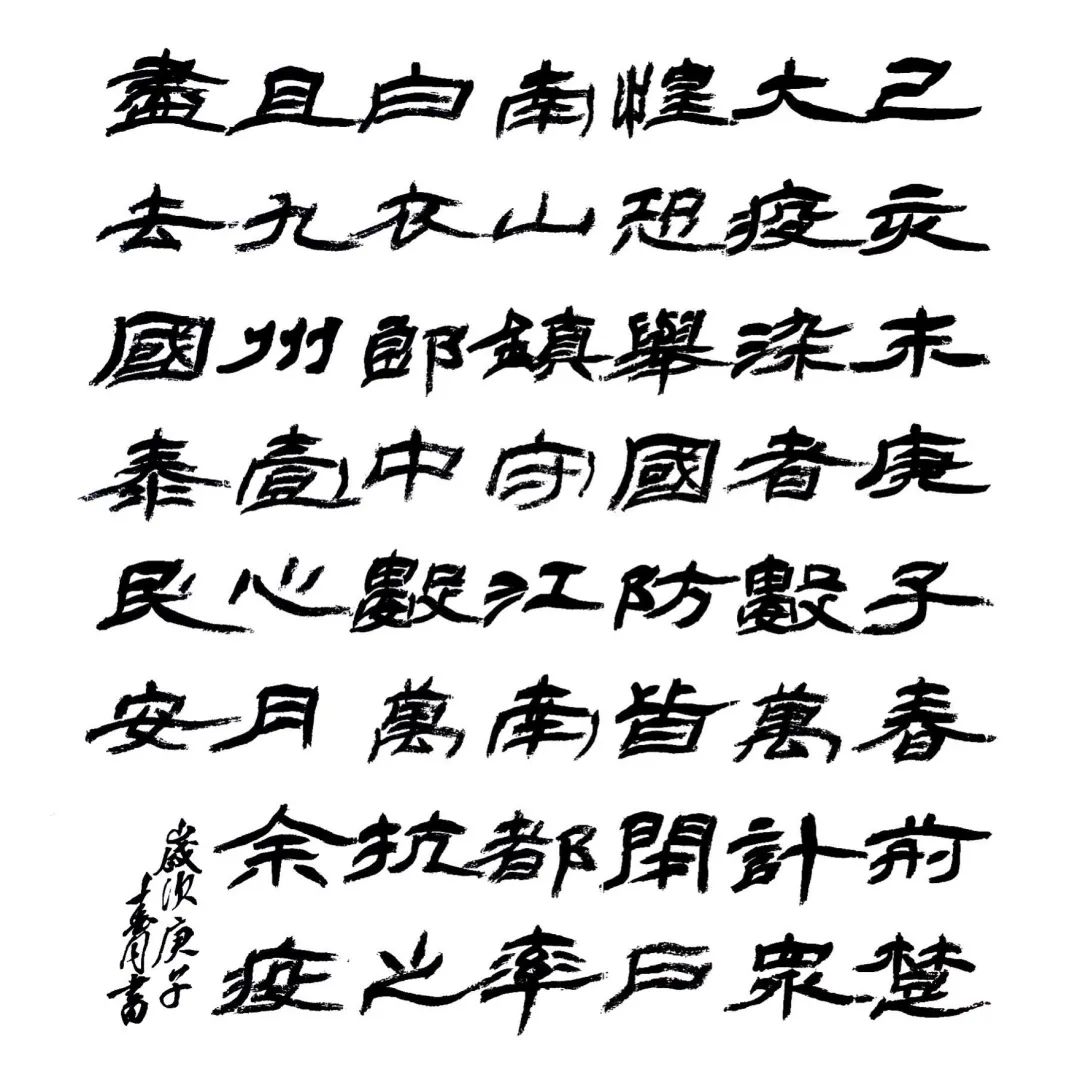 己亥末庚子春前楚
大疫染者數萬計眾
惶恐舉國防皆閉戶
南山鎮守江南都率
白衣郎中數萬抗之
且九州壹心月余疫
盡去國泰民安
歲次庚子
書